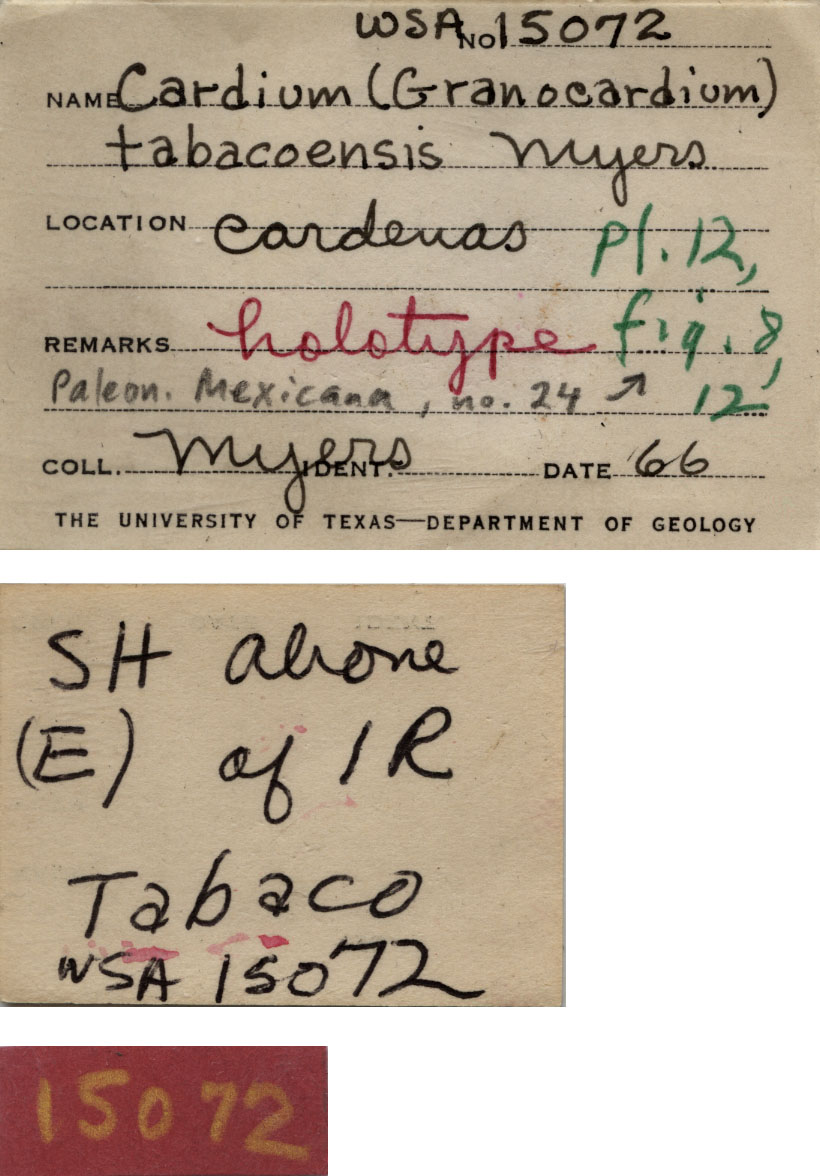 WSA No. 15072
NAME Cardium (Granocardium)
tabacoensis Myers
LOCATION Cardenas Pl. 12,
REMARKS holotype fig. 8,
Paleon. Mexicana, no. 24 ↗ 12
COLL. Myers IDENT. DATE '66
THE UNIVERSITY OF TEXAS—DEPARTMENT OF GEOLOGY
SH above
(E) of IR
Tabaco
WSA 15072
15072